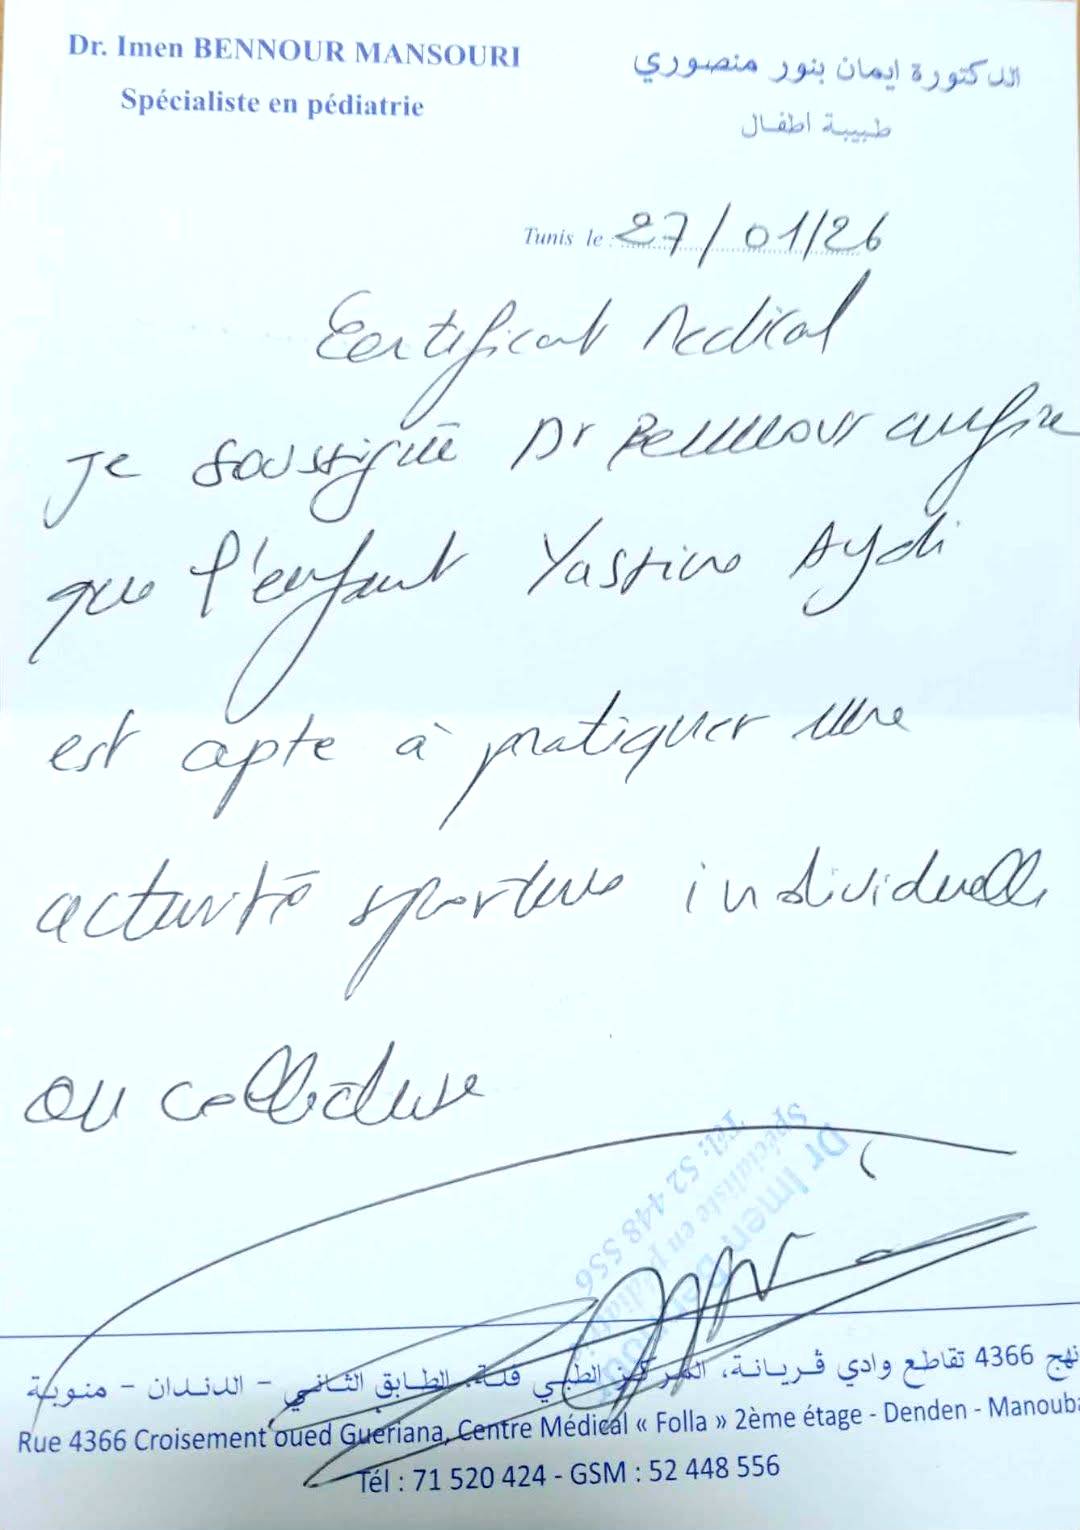 Dr. Imen BENNOUR MANSOURI
Spécialiste en pédiatrie
الدكتورة ايمان بنور منصوري
طبيبة اطفال
Tunis le : 27/01/26
Certificat Medical
Je soussigné Dr Bennour certifie
que l'enfant Yassine Aydi
est apte à pratiquer une
activité sportive individuelle
ou collective
Dr Imen Bennour
Spécialiste en pédiatrie
Tél: 52 448 556
نهج 4366 تقاطع وادي ڤريانة، المركز الطبي فلة، الطابق الثاني - الدندان - منوبة
Rue 4366 Croisement oued Gueriana, Centre Médical « Folla » 2ème étage - Denden - Manouba
Tél : 71 520 424 - GSM : 52 448 556